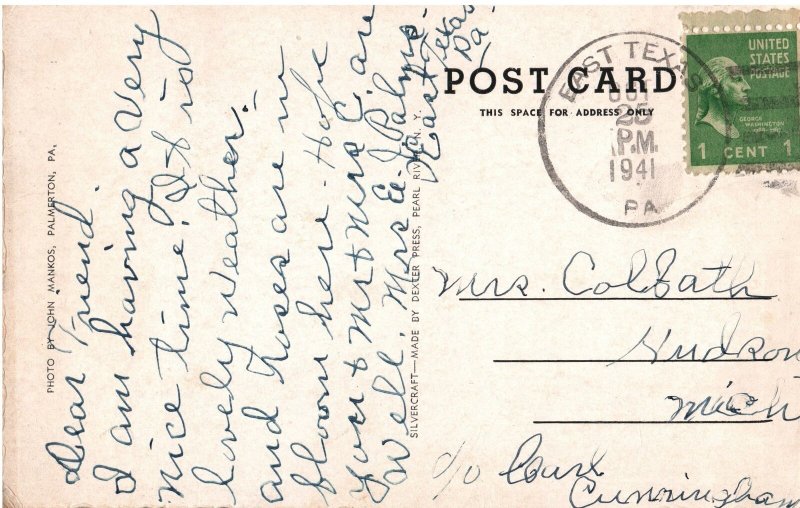 POST CARD
THIS SPACE FOR ADDRESS ONLY
EAST TEXAS
OCT
25
P.M.
1941
PA.
UNITED
STATES
POSTAGE
GEORGE
WASHINGTON
1 CENT 1
Dear Friend.
I am having a Very
nice time. It is
lovely weather.
and roses are in
bloom here. Hope
you & Mr & Mrs C. are
Well. Mrs E. J. Palmer
East Texas
Pa
PHOTO BY JOHN MANKOS, PALMERTON, PA.
SILVERCRAFT—MADE BY DEXTER PRESS, PEARL RIVER, N. Y.
Mrs. Colbath
Hudson
Mich
c/o Carl
Cunningham